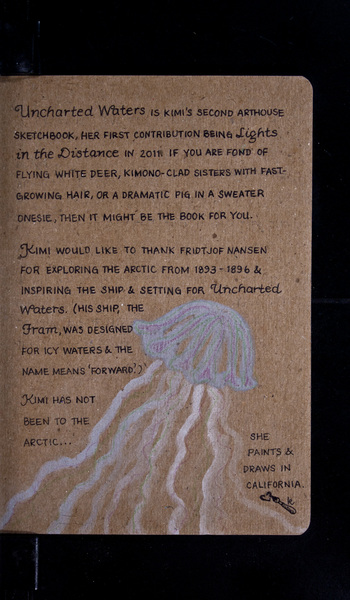 Uncharted Waters IS KIMI'S SECOND ARTHOUSE
SKETCHBOOK, HER FIRST CONTRIBUTION BEING Lights
in the Distance IN 2011. IF YOU ARE FOND OF
FLYING WHITE DEER, KIMONO-CLAD SISTERS WITH FAST-
GROWING HAIR, OR A DRAMATIC PIG IN A SWEATER
ONESIE, THEN IT MIGHT BE THE BOOK FOR YOU.
KIMI WOULD LIKE TO THANK FRIDTJOF NANSEN
FOR EXPLORING THE ARCTIC FROM 1893-1896 &
INSPIRING THE SHIP & SETTING FOR Uncharted
Waters. (HIS SHIP, THE
Fram, WAS DESIGNED
FOR ICY WATERS & THE
NAME MEANS 'FORWARD'.)
KIMI HAS NOT
BEEN TO THE
ARCTIC...
SHE
PAINTS &
DRAWS IN
CALIFORNIA.